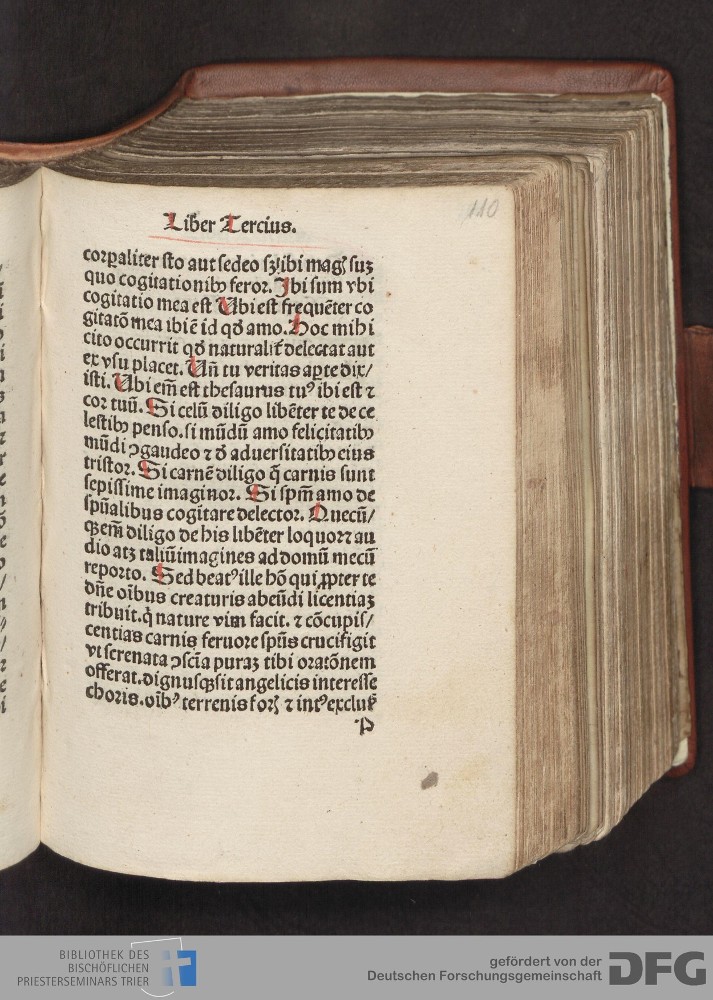 110
Liber Tercius.
corꝑaliter sto aut sedeo sꝫ ibi magꝭ suꝫ
quo cogitationibꝰ feror. Ibi sum vbi
cogitatio mea est Ubi est frequēter co
gitatō mea ibi ē id qđ amo. Hoc mihi
cito occurrit qđ naturalit̄ delectat aut
ex vsu placet. Uñ tu veritas aꝑte dix/
isti. Ubi em̄ est thesaurus tuꝰ ibi est ⁊
cor tuū. Si celū diligo libēter te de ce
lestibꝰ penso. si mūdū amo felicitatibꝰ
mūdi ↄgaudeo ⁊ đ aduersitatibꝰ eius
tristor. Si carnē diligo q̄ carnis sunt
sepissime imaginor. Si spm̄ amo de
spūalibus cogitare delector. Quecū/
qꝫ em̄ diligo de his libēter loquor ⁊ au
dio atqꝫ taliū imagines ad domū mecū
reporto. Sed beatꝰ ille hō qui ꝓpter te
dñe oībus creaturis abeūdi licentiaꝫ
tribuit. q̇ nature vim facit. ⁊ cōcupis/
centias carnis feruore spūs crucifigit
vt serenata ↄscīa puraꝫ tibi oratōnem
offerat. dignusqꝫ sit angelicis interesse
choris. oībꝰ terrenis forꝭ ⁊ intꝰ exclusꝭ
P
BIBLIOTHEK DES
BISCHÖFLICHEN
PRIESTERSEMINARS TRIER
gefördert von der
Deutschen Forschungsgemeinschaft
DFG